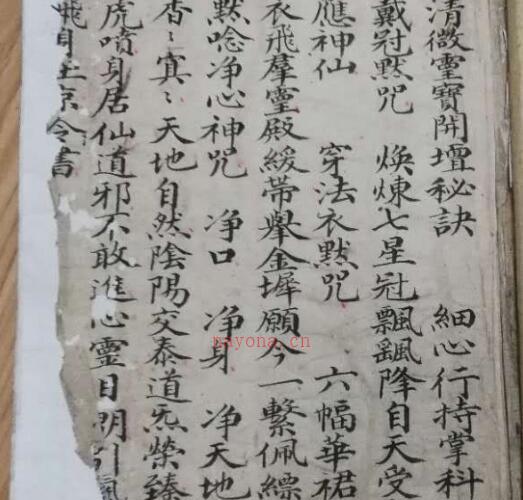 清微靈寶開壇秘訣 細心行持掌科
戴冠黙咒 煥煉七星冠飄飄降自天受
應神仙 穿法衣黙咒 六幅華裙
衣飛羣靈殿緩帶舉金墀願今一繫佩縹
黙唸净心神咒 净口 净身 净天地
香〻寘〻天地自然陰陽交泰道炁榮臻
虎噴身居仙道邪不敢進心靈目明引氣
飛身玉京令書
nayona.cn